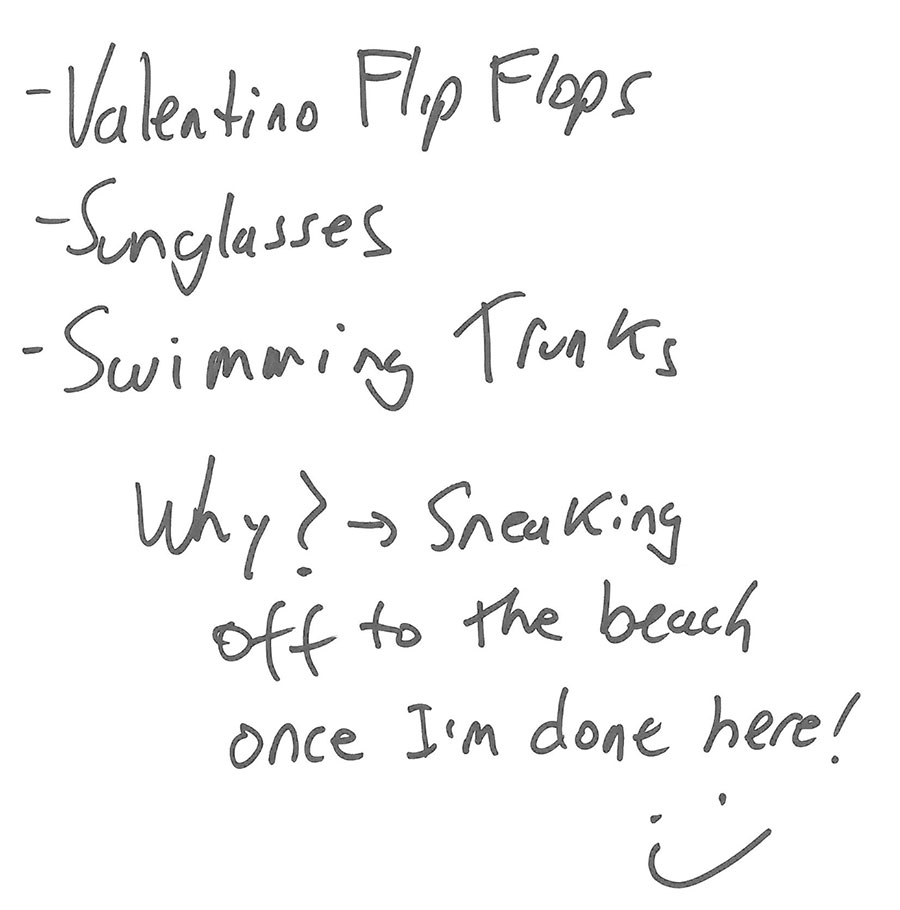 - Valentino Flip Flops
- Sunglasses
- Swimming Trunks
Why? → Sneaking
off to the beach
once I'm done here!